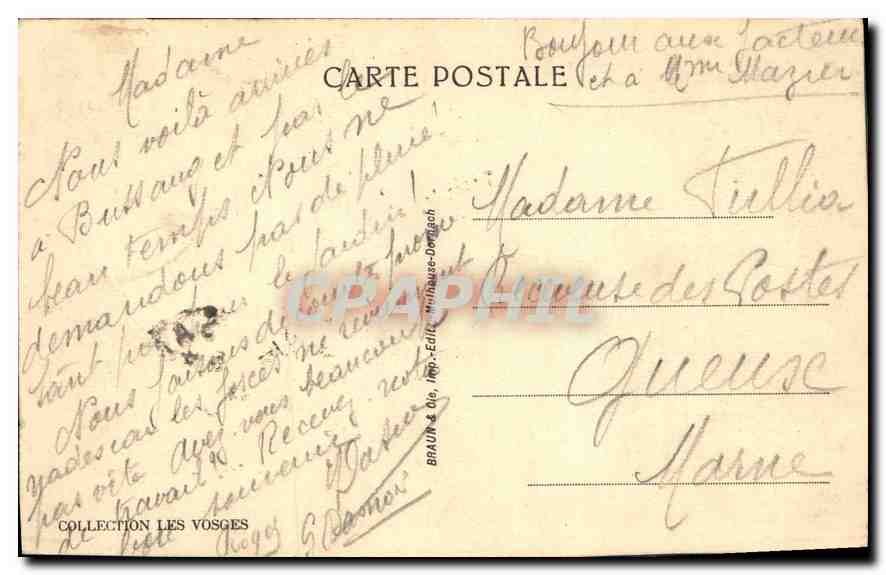 Madame
Nous voilà arrivés
à Bussang et par le
beau temps Nous ne
demandons pas de pluie!
tant pour le jardin!
Nous faisons de courtes promen
yades car les forces ne reviennent
pas vite Avez vous beaucoup
de travail? Recevez notre
souvenir
Roger
CARTE POSTALE
Bonjour aux facteurs
et à Mme Mazier
Madame Tullia
Receveuse des Postes
Gueux
Marne
BRAUN & Cie, Imp.-Edit., Mulhouse-Dornach
COLLECTION LES VOSGES
CPAPHIL